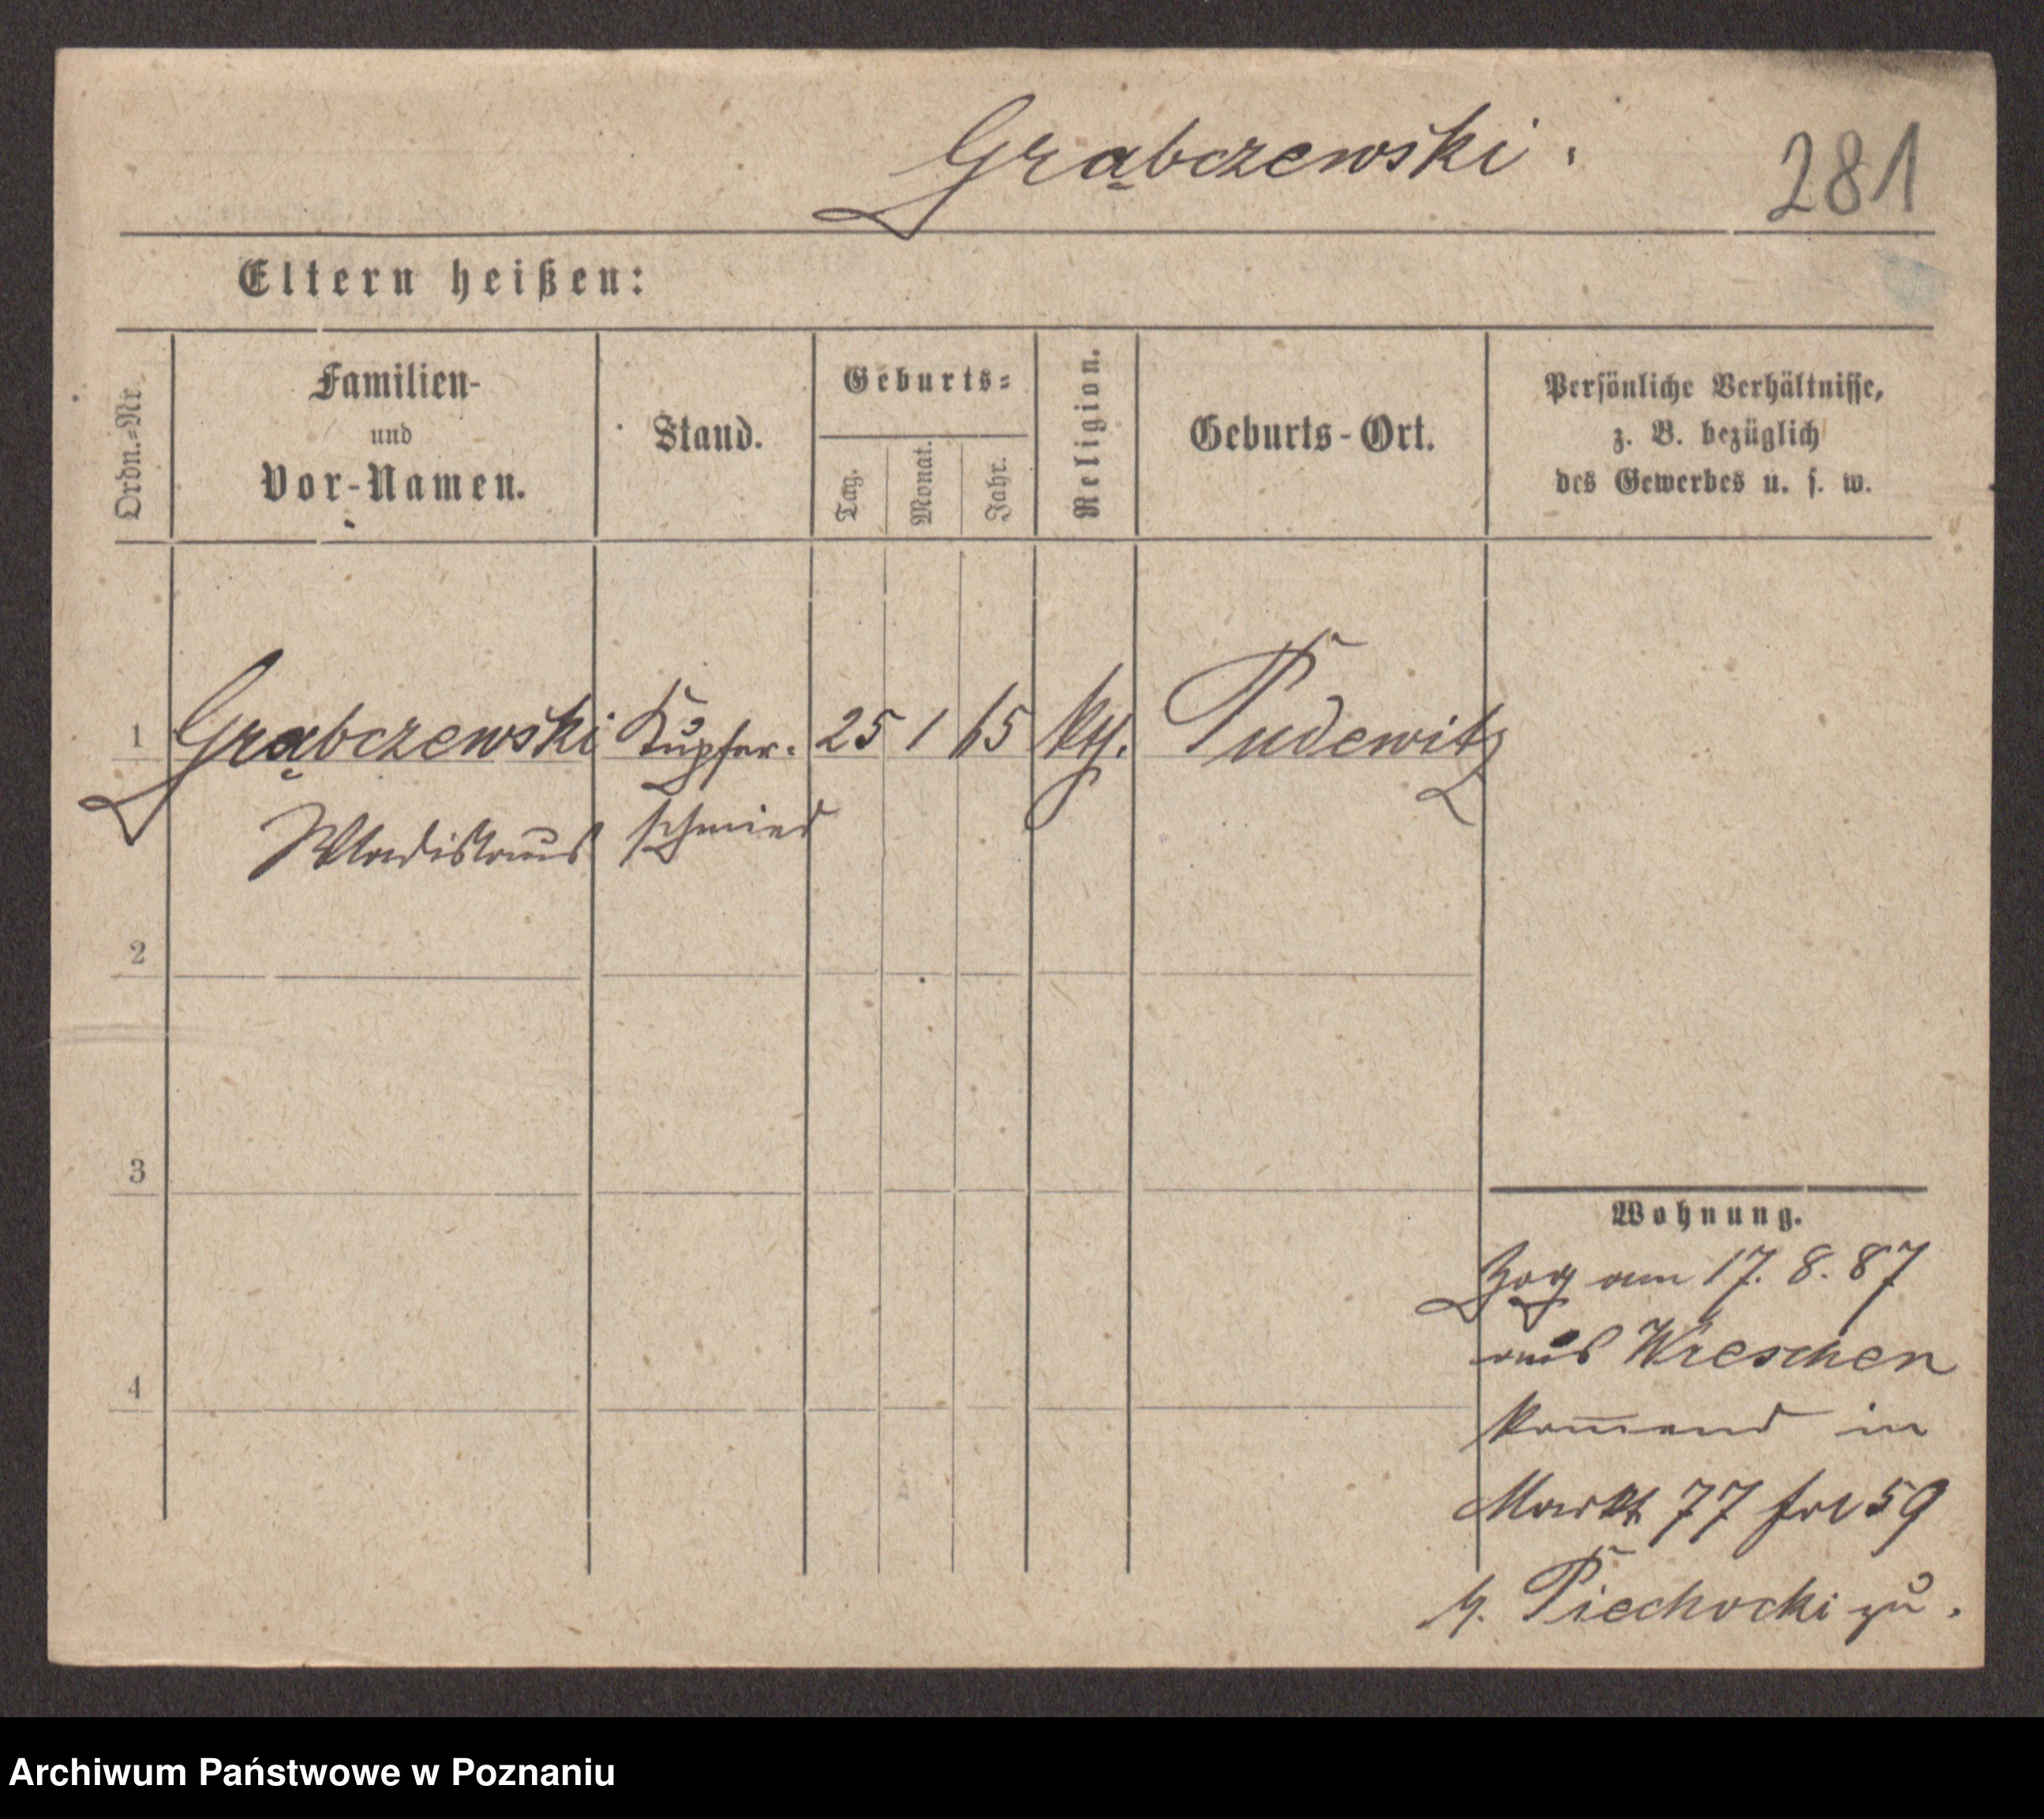 Grąbczewski.
281
Eltern heißen:
Ordn.=Nr
Familien-
und
Vor-Namen.
Stand.
Geburts=
Tag.
Monat.
Jahr.
Religion.
Geburts-Ort.
Persönliche Verhältnisse,
z. B. bezüglich
des Gewerbes u. s. w.
1 Grąbczewski Kupfer- 25 1 65 Pudewitz
Wladislaus schmied
2
3
4
Wohnung.
Zog am 17. 8. 87
aus Wreschen
kom̄end in
Markt 77 59
b. Piechocki zu.
Archiwum Państwowe w Poznaniu